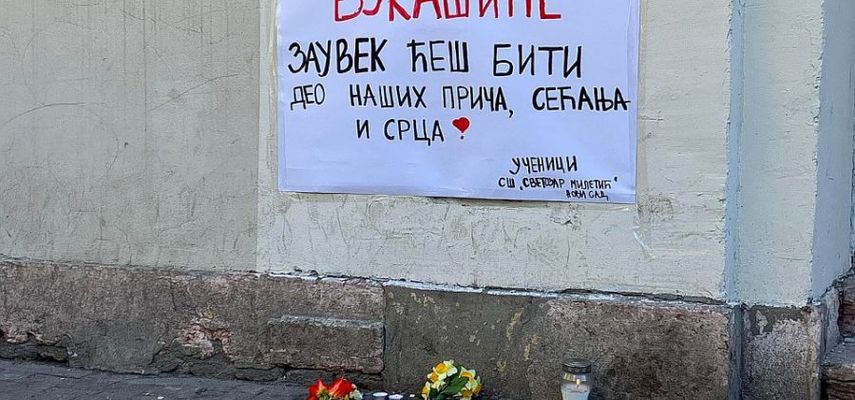 ВУКАШИНЕ
ЗАУВЕК ЋЕШ БИТИ
ДЕО НАШИХ ПРИЧА, СЕЋАЊА
И СРЦА
УЧЕНИЦИ
СШ „СВЕТОЗАР МИЛЕТИЋ"
НОВИ САД